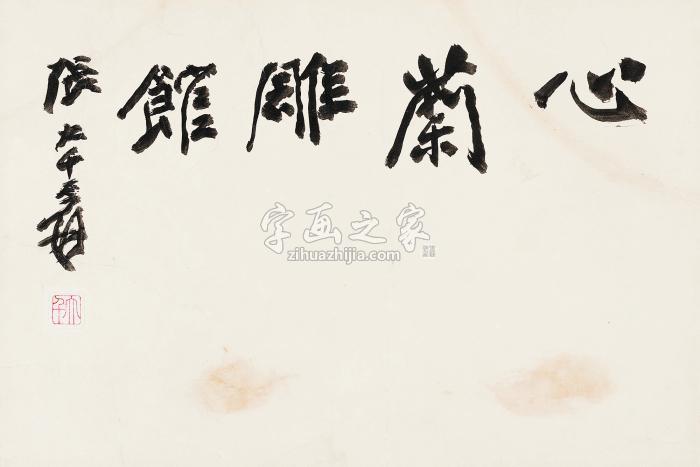 心蘭雕館
張大千爰
大千
字画之家
zihuazhijia.com